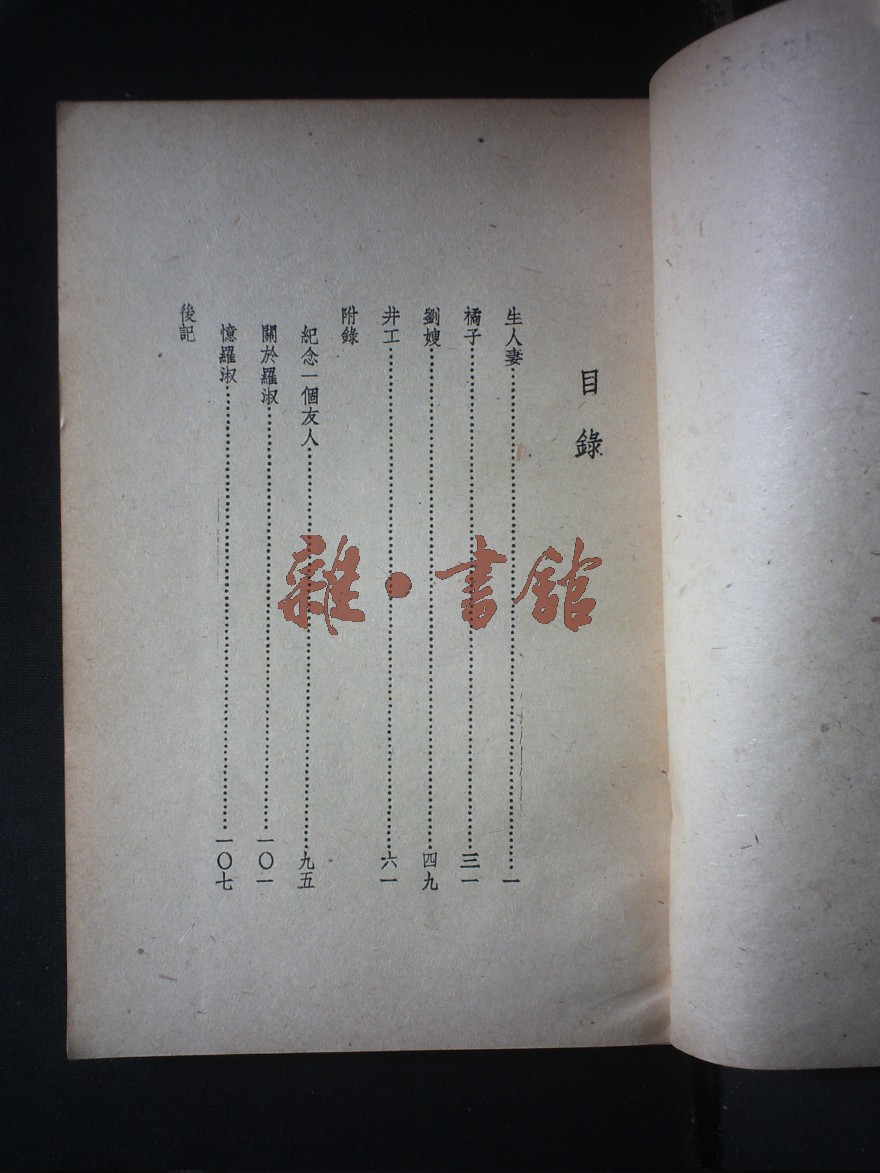 目錄
生人妻……一
橘子……三一
劉嫂……四九
井工……六一
附錄
紀念一個友人……九五
關於羅淑……一〇一
憶羅淑……一〇七
後記
雜·書館